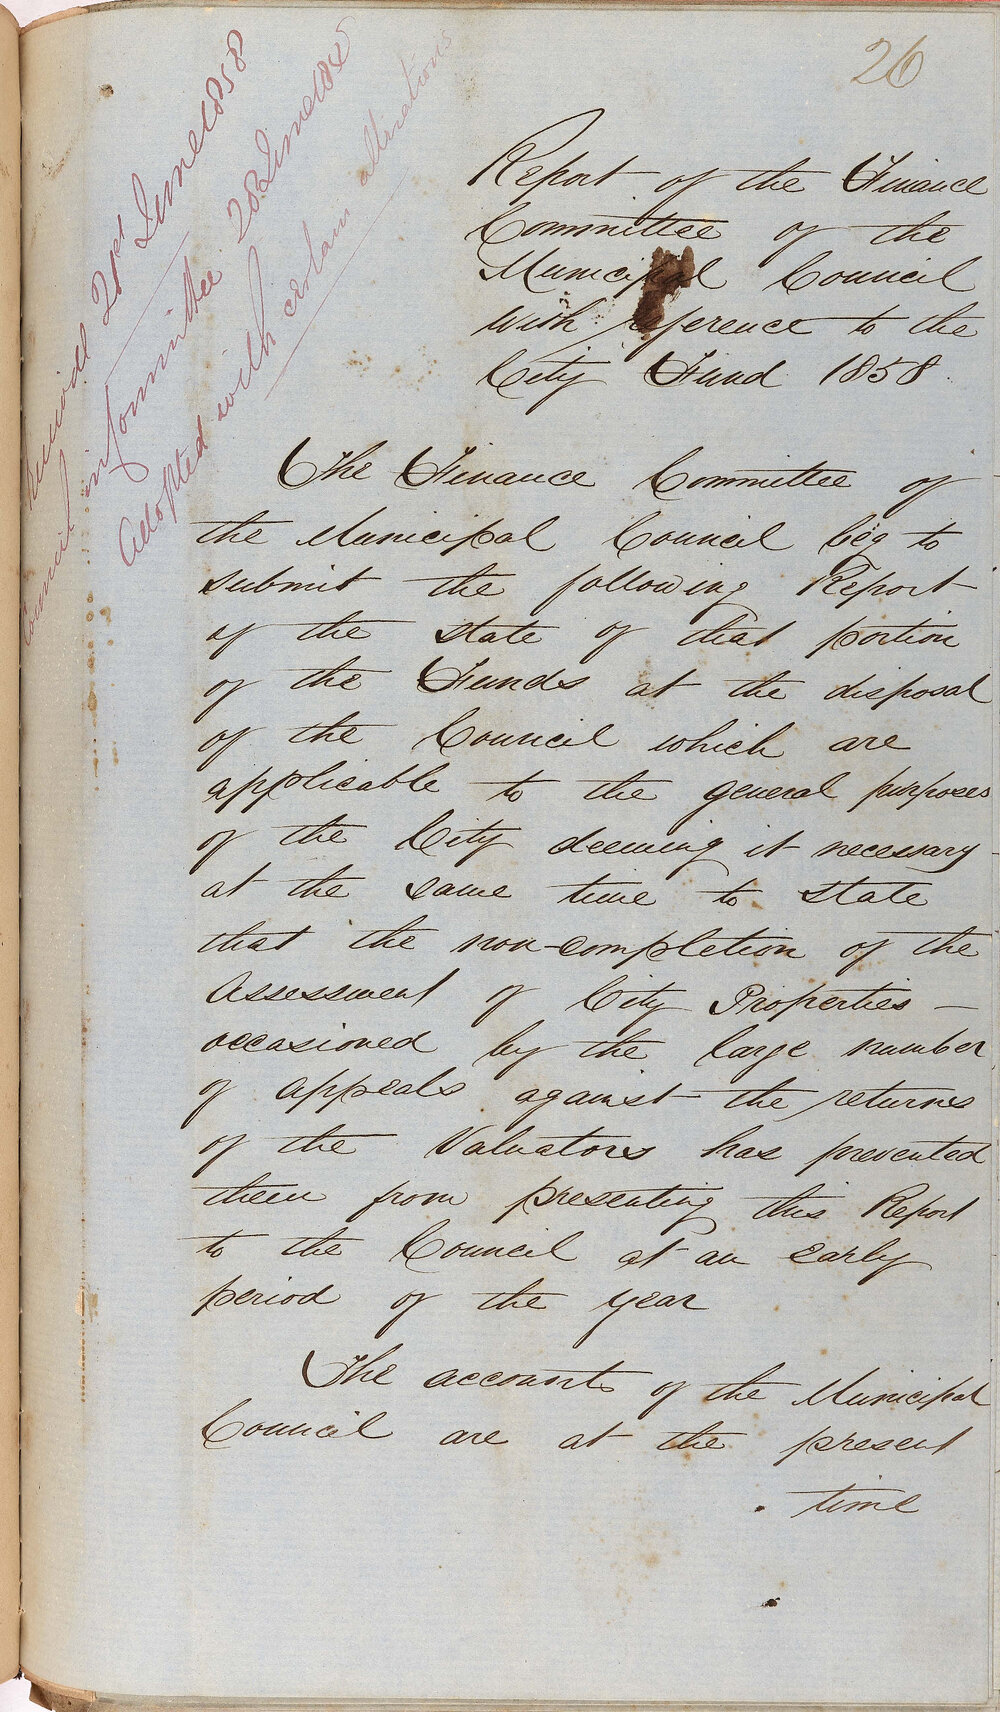 26
Received 21st June 1858
Council in Committee 28 June 1858
Adopted with certain alterations
Report of the Finance
Committee of the
Municipal Council
with reference to the
City Fund 1858
The Finance Committee of
the Municipal Council beg to
submit the following Report
of the state of that portion
of the Funds at the disposal
of the Council which are
applicable to the general purposes
of the City deeming it necessary
at the same time to state
that the non-completion of the
Assessment of City Properties —
occasioned by the large number
of appeals against the returns
of the Valuators has prevented
them from presenting this Report
to the Council at an early
period of the year
The accounts of the Municipal
Council are at the present
time